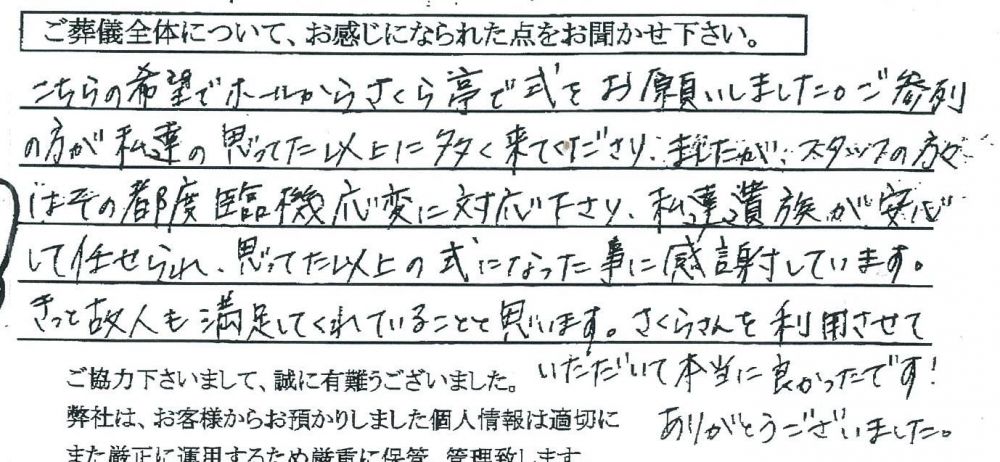 ご葬儀全体について、お感じになられた点をお聞かせ下さい。
こちらの希望でホールからさくら亭で式をお願いしました。ご参列
の方が私達の思ってた以上に多く来てくださり、ましたが、スタッフの方々
はその都度臨機応変に対応下さり、私達遺族が安心
して任せられ、思ってた以上の式になった事に感謝しています。
きっと故人も満足してくれていることと思います。さくらさんを利用させて
いただいて本当に良かったです!
ありがとうございました。
ご協力下さいまして、誠に有難うございました。
弊社は、お客様からお預かりしました個人情報は適切に
また厳正に運用するため厳重に保管、管理致します